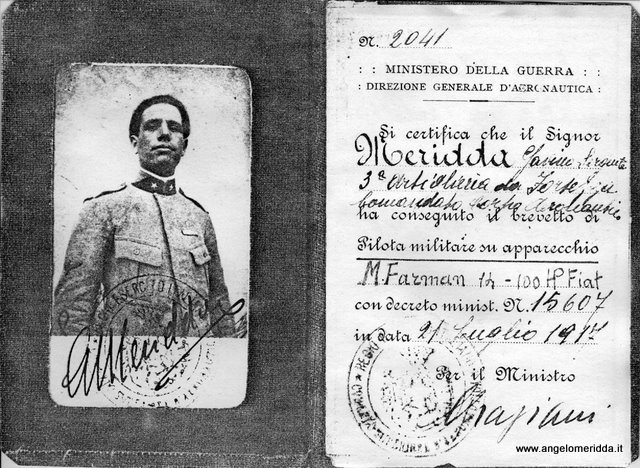 N. 2041
: : MINISTERO DELLA GUERRA : :
: DIREZIONE GENERALE D'AERONAUTICA :
Si certifica che il Signor
Meridda
3ª Artiglieria da Fortezza
Comandato
ha conseguito il brevetto di
Pilota militare su apparecchio
M. Farman 14 - 100 HP Fiat
con decreto minist. N. 15607
in data 21 Luglio 1917
Per il Ministro
AMeridda
www.angelomeridda.it